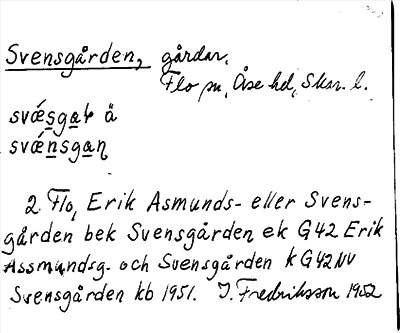 Svensgården, gårdar.
Flo sn, Åse hd, Skar. l.
svǽsgaṛ ä
svǽnsgaṇ
2. Flo, Erik Asmunds- eller Svens-
gården bek Svensgården ek G42 Erik
Assmundsg. och Svensgården k G42NV
Svensgården kb 1951. I. Fredriksson 1952